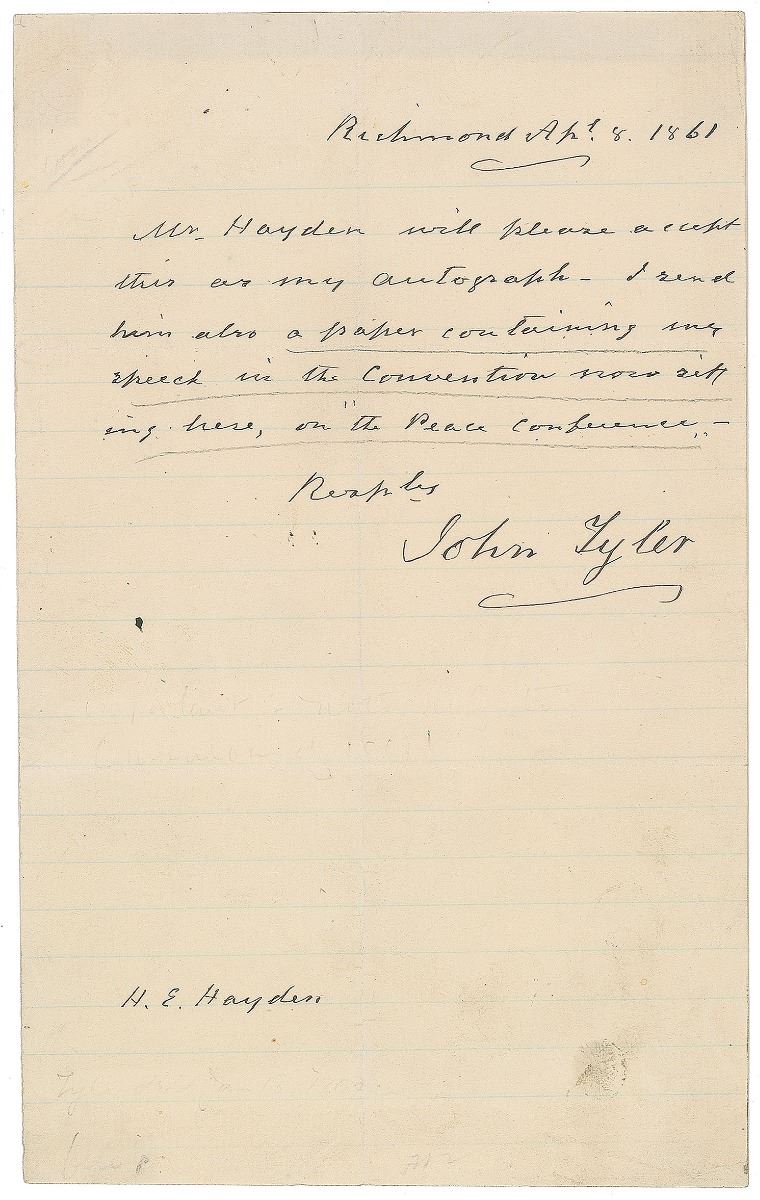 Richmond Apl. 8. 1861
Mr. Hayden will please accept
this as my autograph - I send
him also a paper containing my
speech in the Convention now sitt
ing here, on "the Peace conference," -
Resply
John Tyler
H. E. Hayden